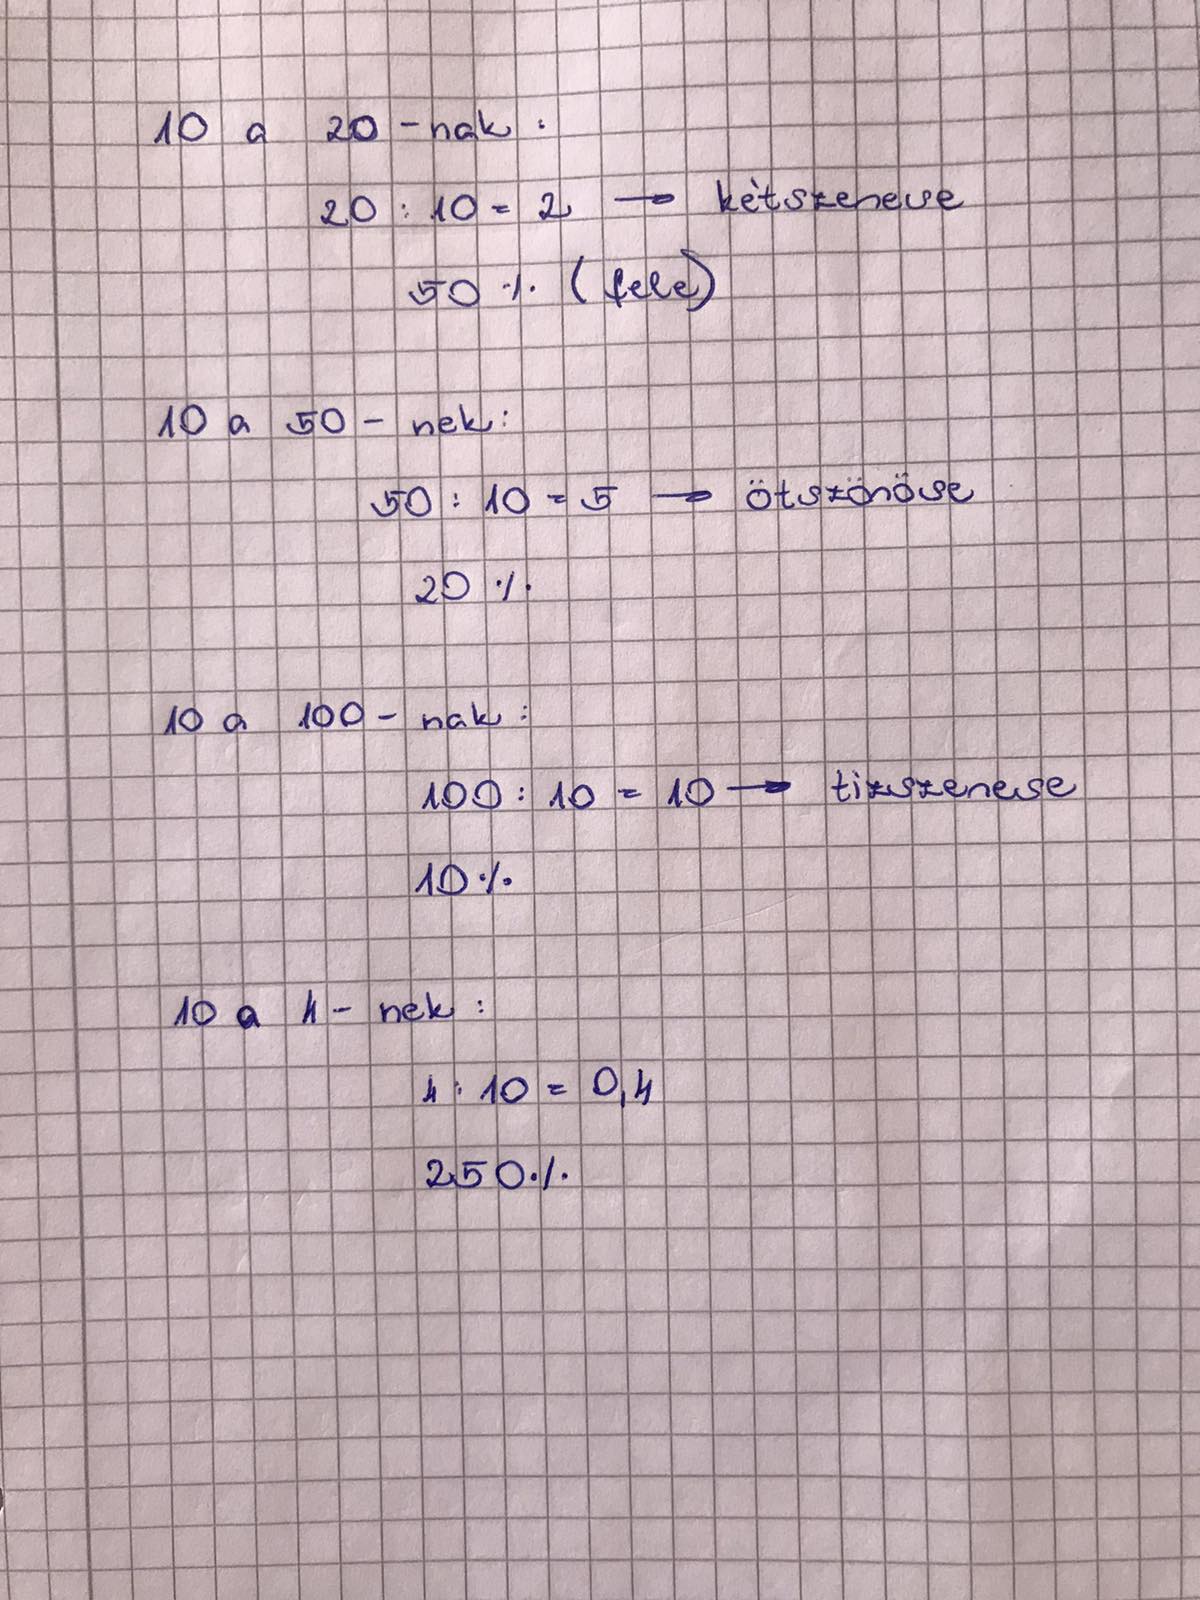 10 a 20-nak:
20 : 10 = 2 → kétszerese
50 % (fele)
10 a 50-nek:
50 : 10 = 5 → ötszöröse
20 %
10 a 100-nak:
100 : 10 = 10 → tizszerese
10 %
10 a 4-nek:
4 : 10 = 0,4
250 %